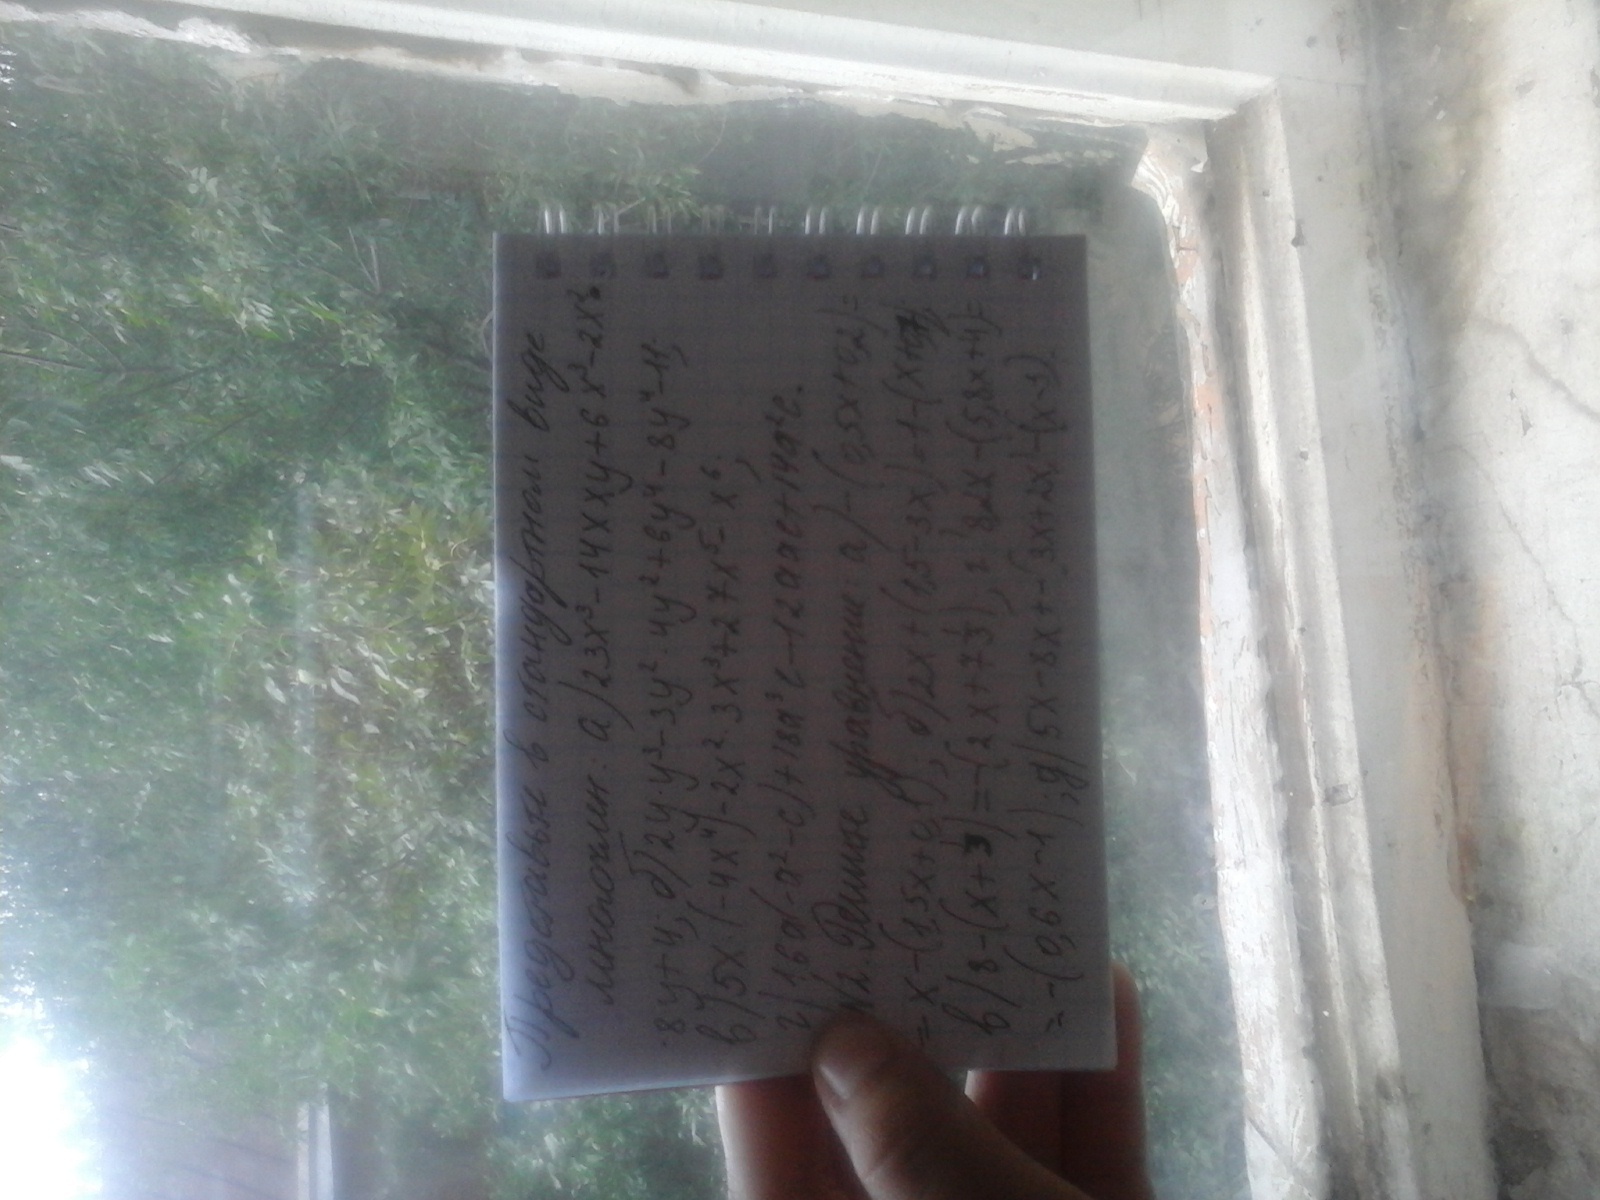 Представьте в стандартном виде
многочлен: а) 23x³-14xxy+6x³-2x³·
·8y+4; б) 2y·y³-3y²·4y²+6y⁴-8y⁴-11;
в) 5x·(-4x⁴)-2x²·3x³+27x⁵-x⁶;
г) 16a(-a²-c)+18a³c-12aac+14a²c.
№2. Решите уравнение: а) -(0,5x+0,2)=
=x-(1,5x+0,); б) 2x+(1,5-3x)=1-(x+
в) 8-(x+3)=-(2x+7 г) 8,2x-(5,8x+4)=
=-(0,6x-1); д) 5x-8x+-(3x+2x)-(x-1).